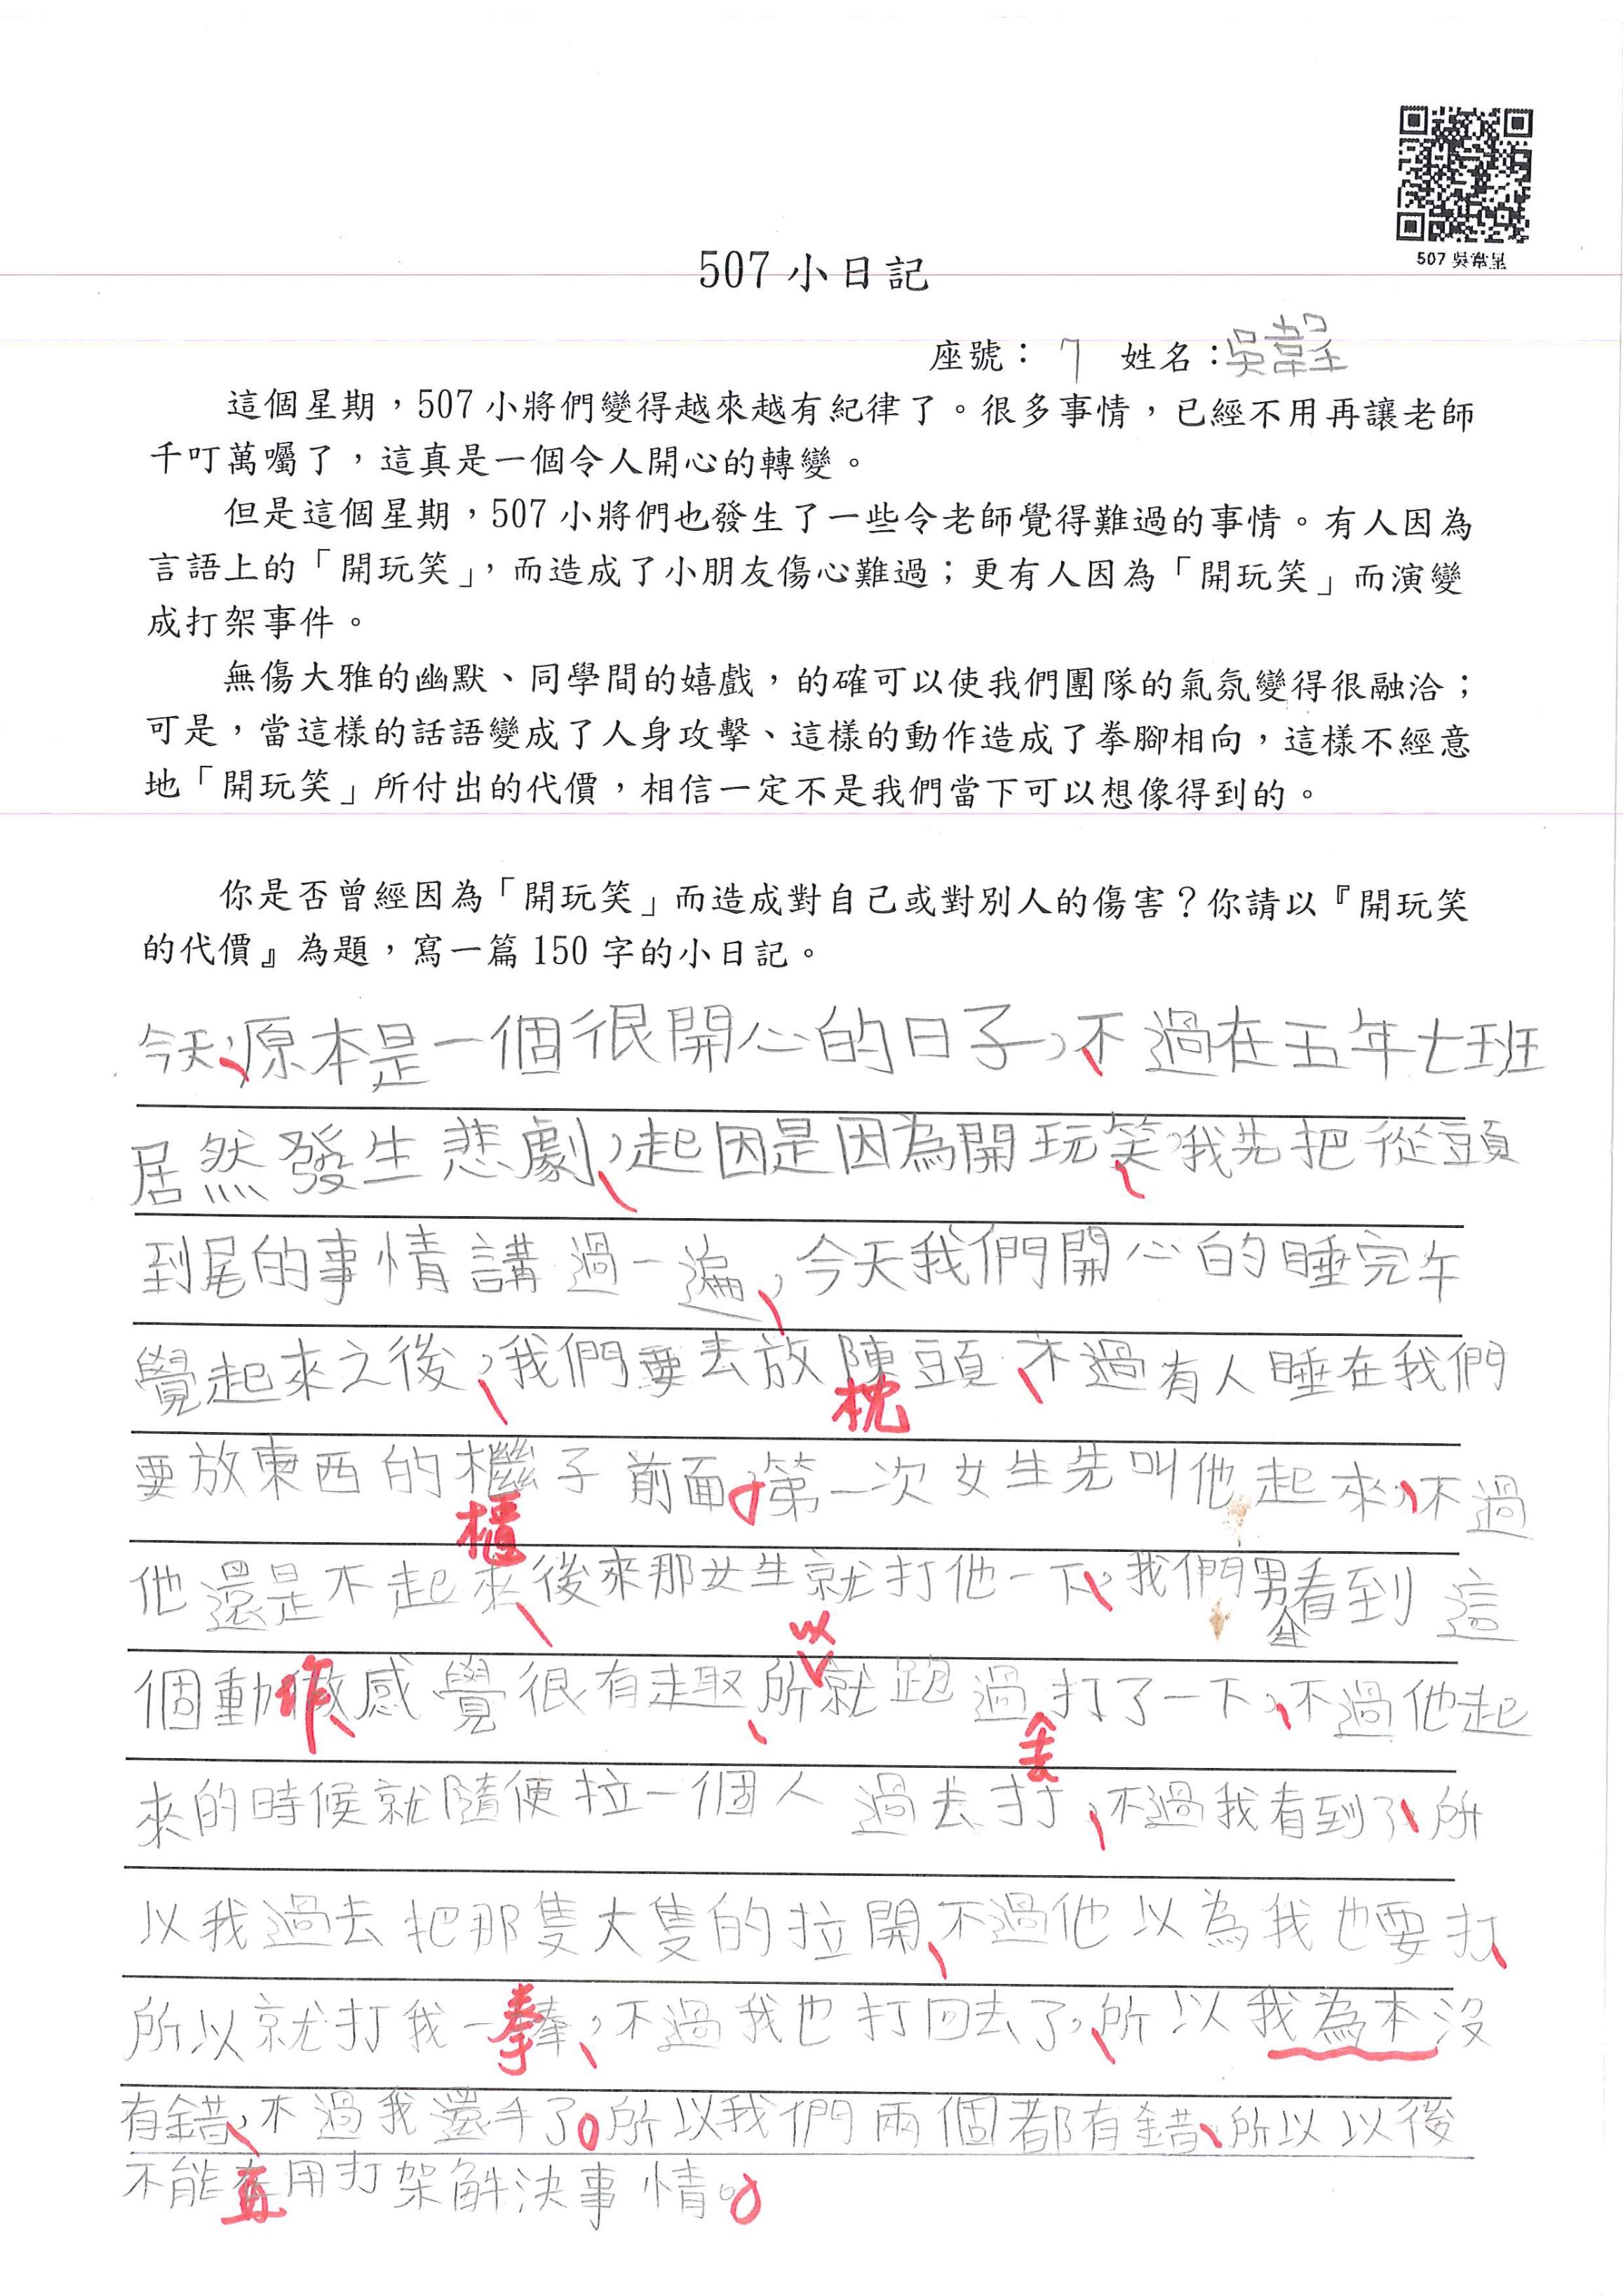 507 吳韋呈
507 小日記
座號： 7 姓名：吳韋呈
這個星期，507 小將們變得越來越有紀律了。很多事情，已經不用再讓老師
千叮萬囑了，這真是一個令人開心的轉變。
但是這個星期，507 小將們也發生了一些令老師覺得難過的事情。有人因為
言語上的「開玩笑」，而造成了小朋友傷心難過；更有人因為「開玩笑」而演變
成打架事件。
無傷大雅的幽默、同學間的嬉戲，的確可以使我們團隊的氣氛變得很融洽；
可是，當這樣的話語變成了人身攻擊、這樣的動作造成了拳腳相向，這樣不經意
地「開玩笑」所付出的代價，相信一定不是我們當下可以想像得到的。
你是否曾經因為「開玩笑」而造成對自己或對別人的傷害？你請以『開玩笑
的代價』為題，寫一篇 150 字的小日記。
今天，原本是一個很開心的日子，不過在五年七班
居然發生悲劇，起因是因為開玩笑，我先把從頭
到尾的事情講過一遍，今天我們開心的睡完午
覺起來之後，我們要去放陳頭，不過有人睡在我們
枕
要放東西的櫃子前面，第一次女生先叫他起來，不過
櫃
他還是不起來，後來那女生就打他一下，我們男生看到這
以
個動作感覺很有趣，所就跑過打了一下，不過他起
去
來的時候就隨便拉一個人過去打，不過我看到了，所
以我過去把那隻大隻的拉開，不過他以為我也要打，
所以就打我一拳，不過我也打回去了，所以我為本沒
有錯，不過我還手了。所以我們兩個都有錯，所以以後
不能再用打架解決事情。